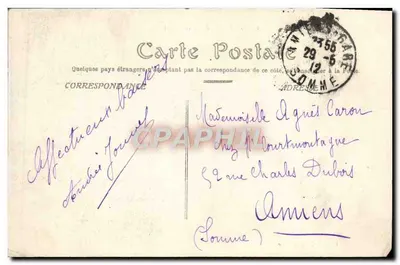 Carte Postale
Quelques pays étrangers n'acceptant pas la correspondance de ce côté, se
CORRESPONDANCE
ADRESSE
AMIENS GARE
23 55
29 - 5
12
SOMME
Affectueux baisers
Andrée
Mademoiselle Agnès Caron
chez Mr Courtmontagne
52 rue Charles Dubois
Amiens
(Somme)
CPAPHIL